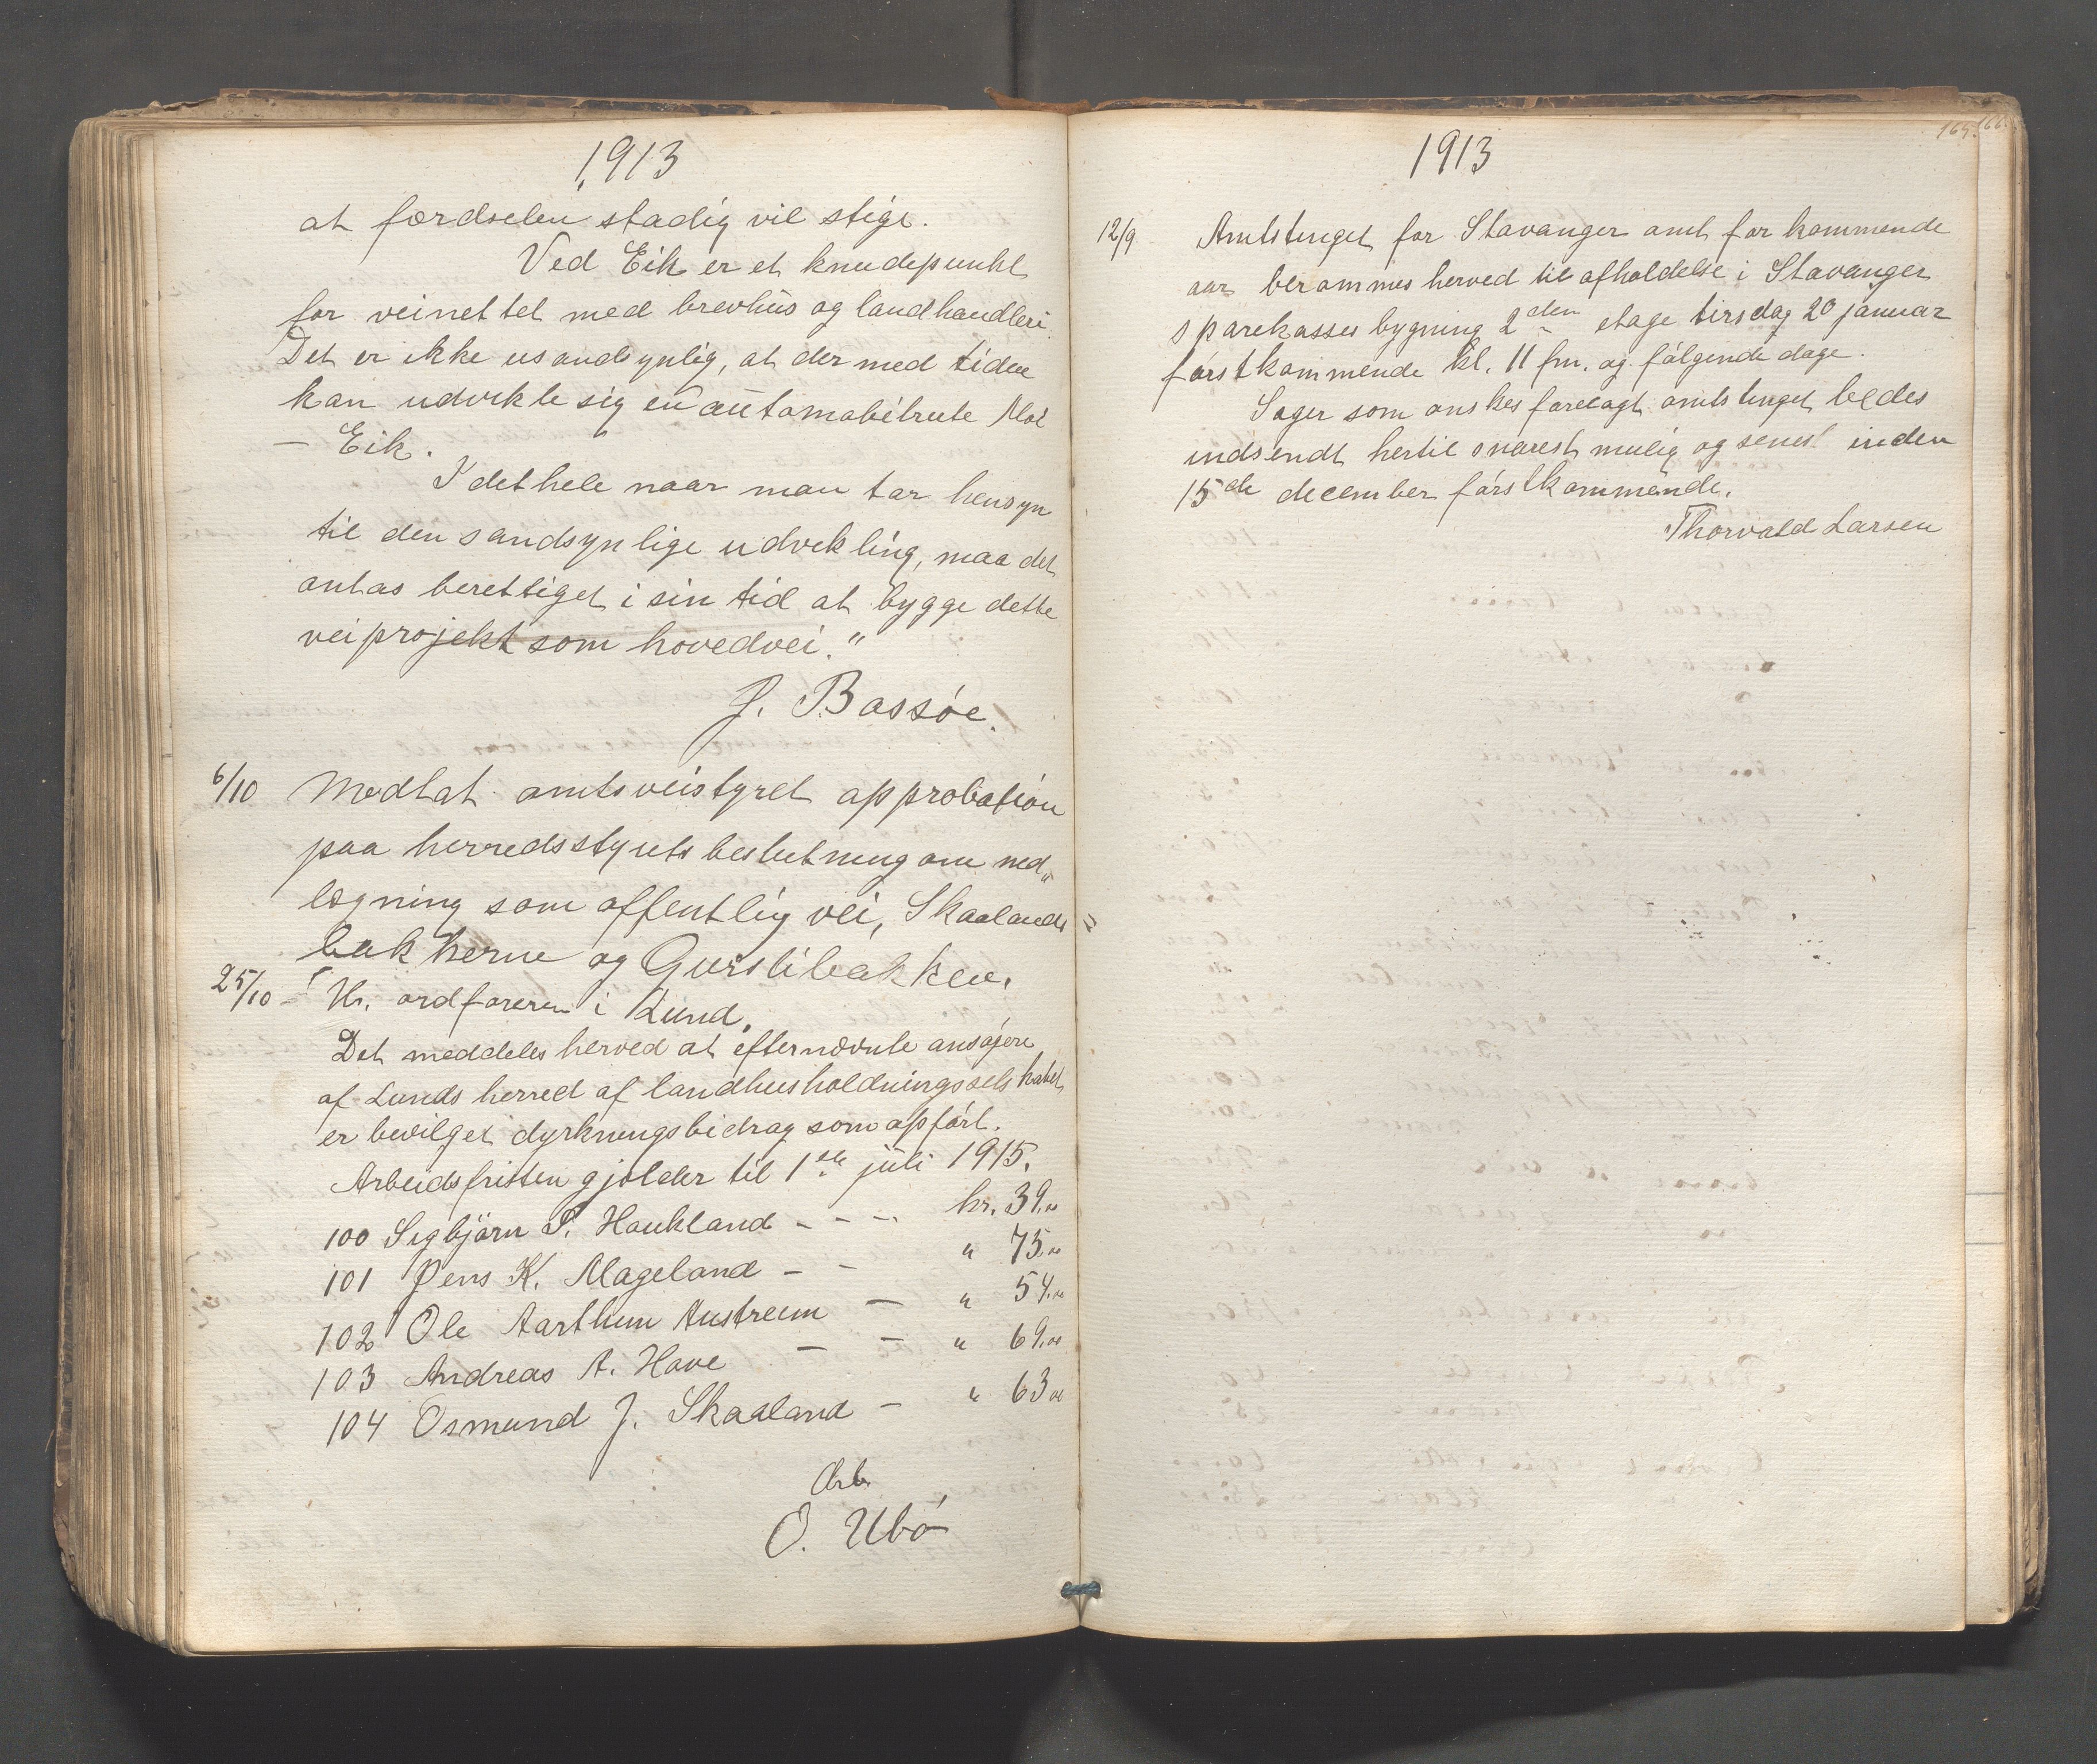 1913
at færdselen stadig vil stige.
Ved Eik er et knudepunkt
for veinettet med brevhus og landhandleri.
Det er ikke usandsynlig, at der med tiden
kan udvikle sig en automobilrute Moi
— Eik.
I det hele naar man tar hensyn
til den sandsynlige udvikling, maa det
antas berettiget i sin tid at bygge dette
veiprojekt som hovedvei."
J. Bassóe.
6/10 Modtat amtsveistyret approbation
paa herredsstyrets beslutning om ned„
lægning som offentlig vei, Skaalands=
bakkerne og Gurslibakken.
25/10 – Hr. ordføreren i Lund.
Det meddeles herved at efternævnte ansøgere
af Lunds herred af landhusholdningsselskabet
er bevilget dyrkningsbidrag som opfört.
Arbeidsfristen gjælder til 1ste juli 1915.
100 Sigbjørn S. Haukland - - - kr. 39.00
101 Jens K. Mageland - - " 75.00
102 Ole Aarthun Austreim — " 54.00
103 Andreas A. Hove — " 69.00
104 Osmund J. Skaaland - " 63.00
Ærb
O. Ubó
165. 166.
1913
12/9 Amtstinget for Stavanger amt for kommende
aar berammes herved til afholdelse i Stavanger
sparekasses bygning 2den etage tirsdag 20 januar
förstkommende kl. 11 fm. og fölgende dage.
Sager som ønskes forelagt amtstinget bedes
indsendt hertil snarest mulig og senest inden
15de december förstkommende.
Thorvald Larsen